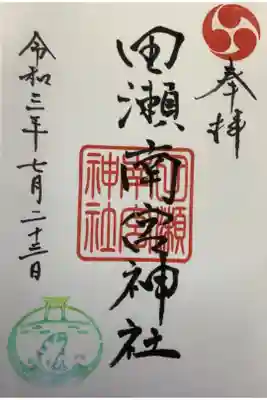 奉拝
田瀬南宮神社
田瀬南宮神社
令和三年七月二十三日